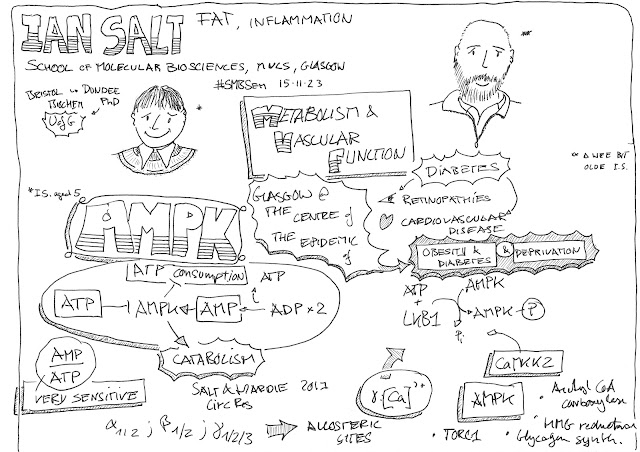 IAN SALT
FAT, INFLAMMATION
SCHOOL OF MOLECULAR BIOSCIENCES, MVLS, GLASGOW
#SMBSem 15.11.23
BRISTOL
DUNDEE
BIOCHEM
PhD
UofG
* I.S. aged 5
METABOLISM &
VASCULAR
FUNCTION
** A WEE BIT
OLDE I.S.
DIABETES
RETINOPATHIES
CARDIOVASCULAR
DISEASE
GLASGOW @
THE
CENTRE of
THE
EPIDEMIC of
OBESITY &
DIABETES
& DEPRIVATION
AMPK
ATP consumption
ATP
ATP
AMPK
AMP
ADP x 2
CATABOLISM
AMP
ATP
VERY SENSITIVE
SALT & HARDIE 2017
Circ Res
α1/2 ; β1/2 ; γ1/2/3
ALLOSTERIC
SITES
ATP
+
LKB1
AMPK
AMPK-P
Pi
[Ca]2+
CaMKK2
AMPK
• Acetyl CoA
carboxylase
• HMG reductase
• Glycogen synth.
• TORC1